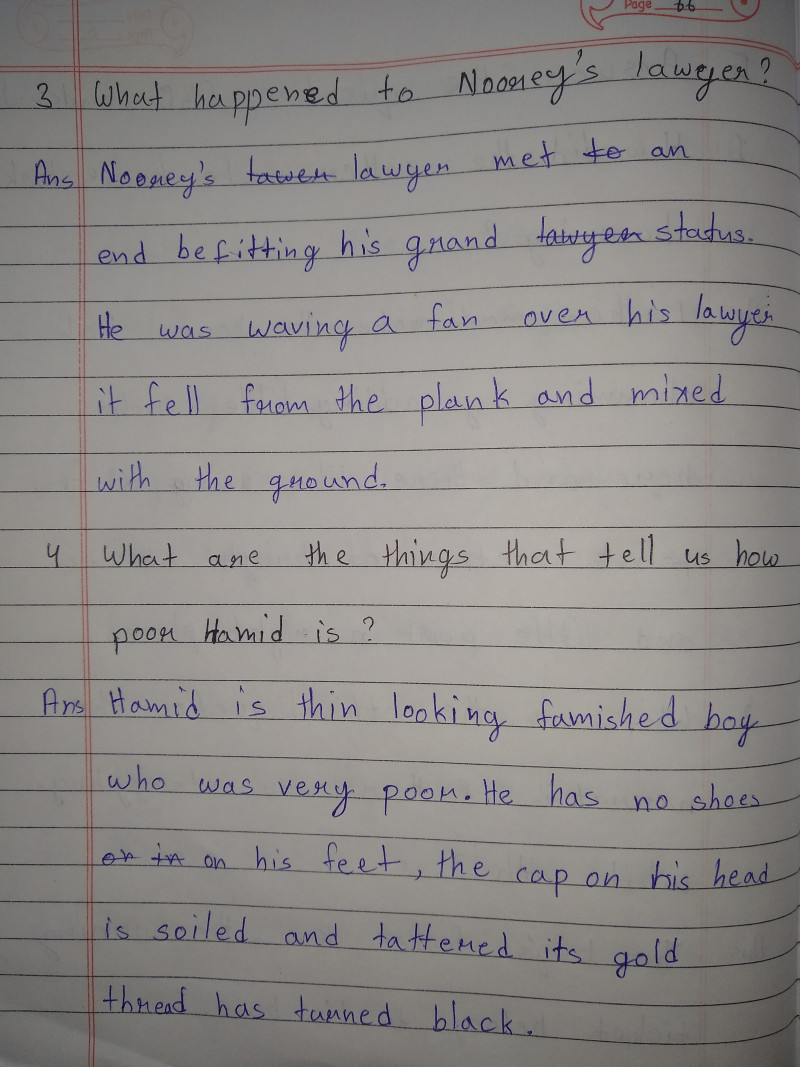 Page 66
3 What happened to Nooney's lawyer?
Ans Nooney's tawer lawyer met to an
end befitting his grand lawyer status.
He was waving a fan over his lawyer
it fell from the plank and mixed
with the ground.
4 What are the things that tell us how
poor Hamid is ?
Ans Hamid is thin looking famished boy
who was very poor. He has no shoes
or in on his feet, the cap on his head
is soiled and tattered its gold
thread has turned black.